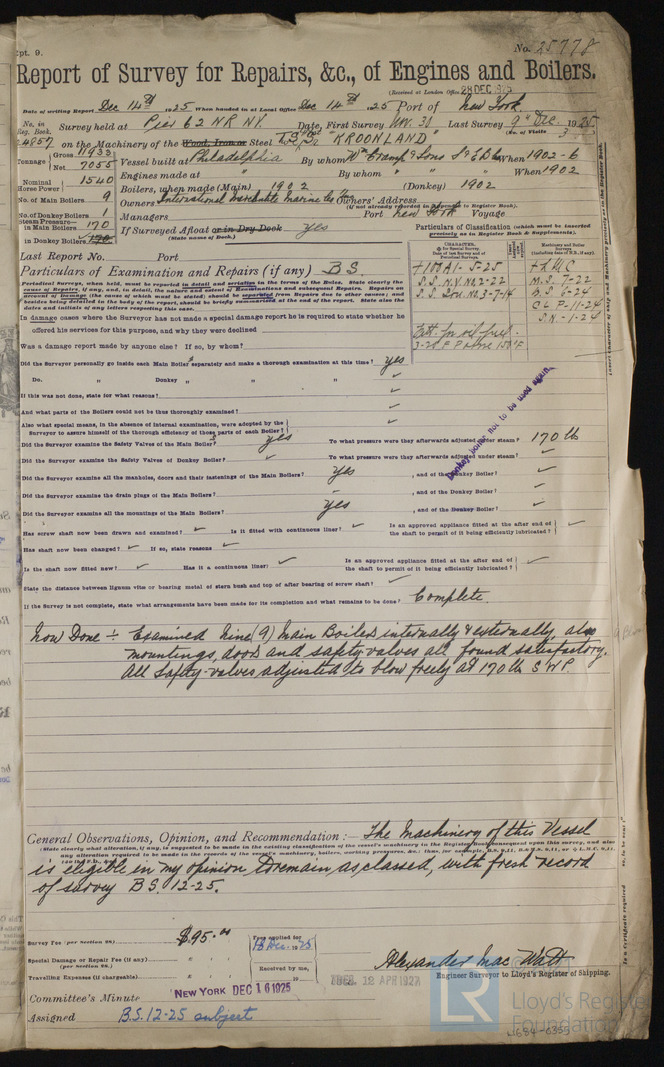 Rpt. 9.
No. 25778
Report of Survey for Repairs, &c., of Engines and Boilers.
(Received at London Office 28 DEC 1925
Date of writing Report Dec 14th 1925 When handed in at Local Office Dec 14th 25 Port of New York.
No. in Reg. Book. Survey held at Pier 62 N.R. N.Y. Date, First Survey Nov. 30 Last Survey 9th Dec. 1925
(No. of Visits 3
4957 on the Machinery of the Wood, Iron or Steel "KROONLAND"
Tonnage Gross 11933 Net 7055 Vessel built at Philadelphia By whom Wm Cramp & Sons When 1902-6
Engines made at " By whom " " " When 1902
Nominal Horse Power 1540
Boilers, when made (Main) 1902 (Donkey) 1902
No. of Main Boilers 9
Owners International Mercantile Marine Owners' Address
(if not already recorded in Appendix to Register Book).
No. of Donkey Boilers 1
Managers Port New York Voyage
Steam Pressure in Main Boilers 170
If Surveyed Afloat or in Dry Dock Yes
(State name of Dock.)
in Donkey Boilers
Particulars of Classification (which must be inserted precisely as in Register Book & Supplements).
+100A1- 5-25
S.S. N.Y. No.2-22
+LMC
M.S. 7-22
B.S. 6-24
C L P-11-24
S.N.-1-24
Fitt. for oil fuel-
3-20 F P above 150°F
Last Report No. Port
Particulars of Examination and Repairs (if any) B.S.
Periodical Surveys, when held, must be reported in detail and seriatim in the terms of the Rules. State clearly the cause of Repairs, if any, and, in detail, the nature and extent of Examinations and subsequent Repairs. Repairs on account of Damage (the cause of which must be stated) should be separated from Repairs due to other causes; and besides being detailed in the body of the report, should be briefly summarised at the end of the report. State also the dates and initials of any letters respecting this case.
In damage cases where the Surveyor has not made a special damage report he is required to state whether he
offered his services for this purpose, and why they were declined
Was a damage report made by anyone else? If so, by whom?
Did the Surveyor personally go inside each Main Boiler separately and make a thorough examination at this time? Yes
Do. " Donkey " " " "
If this was not done, state for what reasons?
And what parts of the Boilers could not be thus thoroughly examined?
Also what special means, in the absence of internal examination, were adopted by the
Surveyor to assure himself of the thorough efficiency of those parts of each Boiler?
Donkey boiler not to be used again.
Did the Surveyor examine the Safety Valves of the Main Boiler? Yes To what pressure were they afterwards adjusted under steam? 170 lb
Did the Surveyor examine the Safety Valves of Donkey Boiler? To what pressure were they afterwards adjusted under steam?
Did the Surveyor examine all the manholes, doors and their fastenings of the Main Boilers? Yes , and of the Donkey Boiler?
Did the Surveyor examine the drain plugs of the Main Boilers? , and of the Donkey Boiler?
Did the Surveyor examine all the mountings of the Main Boilers? Yes , and of the Donkey Boiler?
Has screw shaft now been drawn and examined? Is it fitted with continuous liner? Is an approved appliance fitted at the after end of the shaft to permit of it being efficiently lubricated?
Has shaft now been changed? If so, state reasons
Is the shaft now fitted new? Has it a continuous liner? Is an approved appliance fitted at the after end of the shaft to permit of it being efficiently lubricated?
State the distance between lignum vitæ or bearing metal of stern bush and top of after bearing of screw shaft?
If the Survey is not complete, state what arrangements have been made for its completion and what remains to be done? Complete
Now Done ÷ Examined Nine (9) Main Boilers internally & externally, also
mountings, doors and safety-valves all found satisfactory.
All Safety-valves adjusted to blow freely at 170 lb S W P.
General Observations, Opinion, and Recommendation:— The Machinery of this Vessel
(State clearly what alteration, if any, is suggested to be made in the existing classification of the vessel's machinery in the Register Book consequent upon this survey, and also any alteration required to be made in the records of the vessel's machinery, boilers, working pressures, &c.
is eligible in my opinion to remain as classed, with fresh record
of survey B.S. 12-25.
Survey Fee (per Section 28) $95.00
Fees applied for 18 Dec. 1925
Special Damage or Repair Fee (if any) (per Section 28.)
Received by me,
Travelling Expenses (if chargeable)
Alexander Mac Watt
Engineer Surveyor to Lloyd's Register of Shipping.
12 APR 1927
Committee's Minute NEW YORK DEC 16 1925
Assigned B.S. 12-25 subject
LR Lloyd's Register Foundation